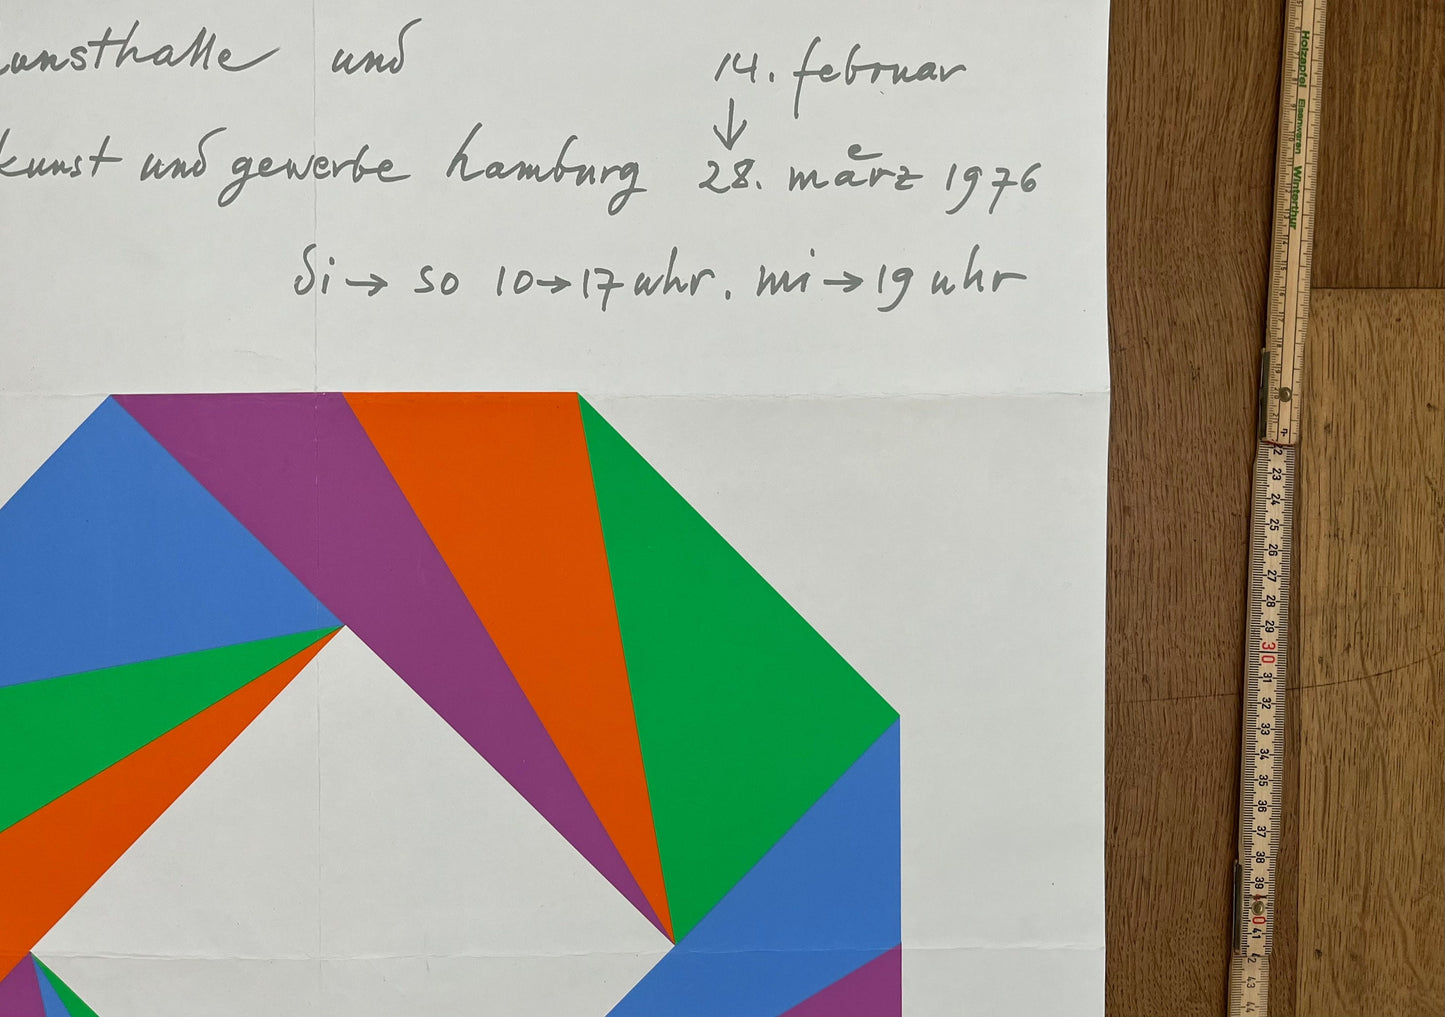 kunsthalle und
14. februar
↓
kunst und gewerbe hamburg 28. märz 1976
di → so 10 → 17 uhr. mi → 19 uhr
Holzapfel Eisenwaren Winterthur
22 23 24 25 26 27 28 29 30 31 32 33 34 35 36 37 38 39 40 41 42 43 44